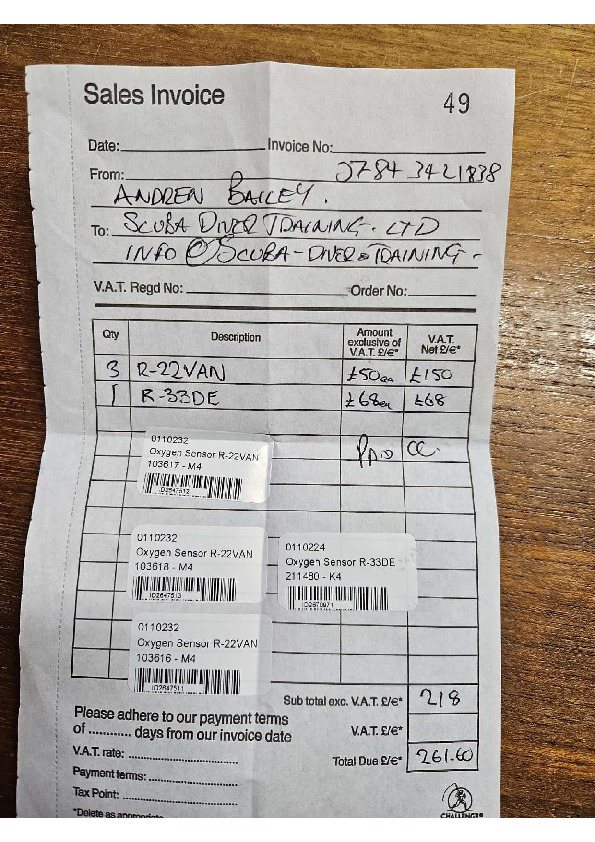 Sales Invoice
49
Date: Invoice No:
From: 0784 3421838
ANDREW BAILEY.
To: SCUBA DIVER TRAINING. LTD
INFO @ SCUBA-DIVER TRAINING-
V.A.T. Regd No: Order No:
Qty Description Amount exclusive of V.A.T. £/€* V.A.T. Net £/€*
3 R-22VAN £50ea £150
1 R-33DE £68ea £68
PAID CC.
0110232
Oxygen Sensor R-22VAN
103617 - M4
0110232
Oxygen Sensor R-22VAN
103618 - M4
ID2647513
0110224
Oxygen Sensor R-33DE
211480 - K4
0110232
Oxygen Sensor R-22VAN
103616 - M4
ID2647511
Sub total exc. V.A.T. £/€* 218
Please adhere to our payment terms
of ............ days from our invoice date
V.A.T. £/€*
V.A.T. rate:
Total Due £/€* 261.60
Payment terms:
Tax Point:
*Delete as appropriate
CHALLENGE